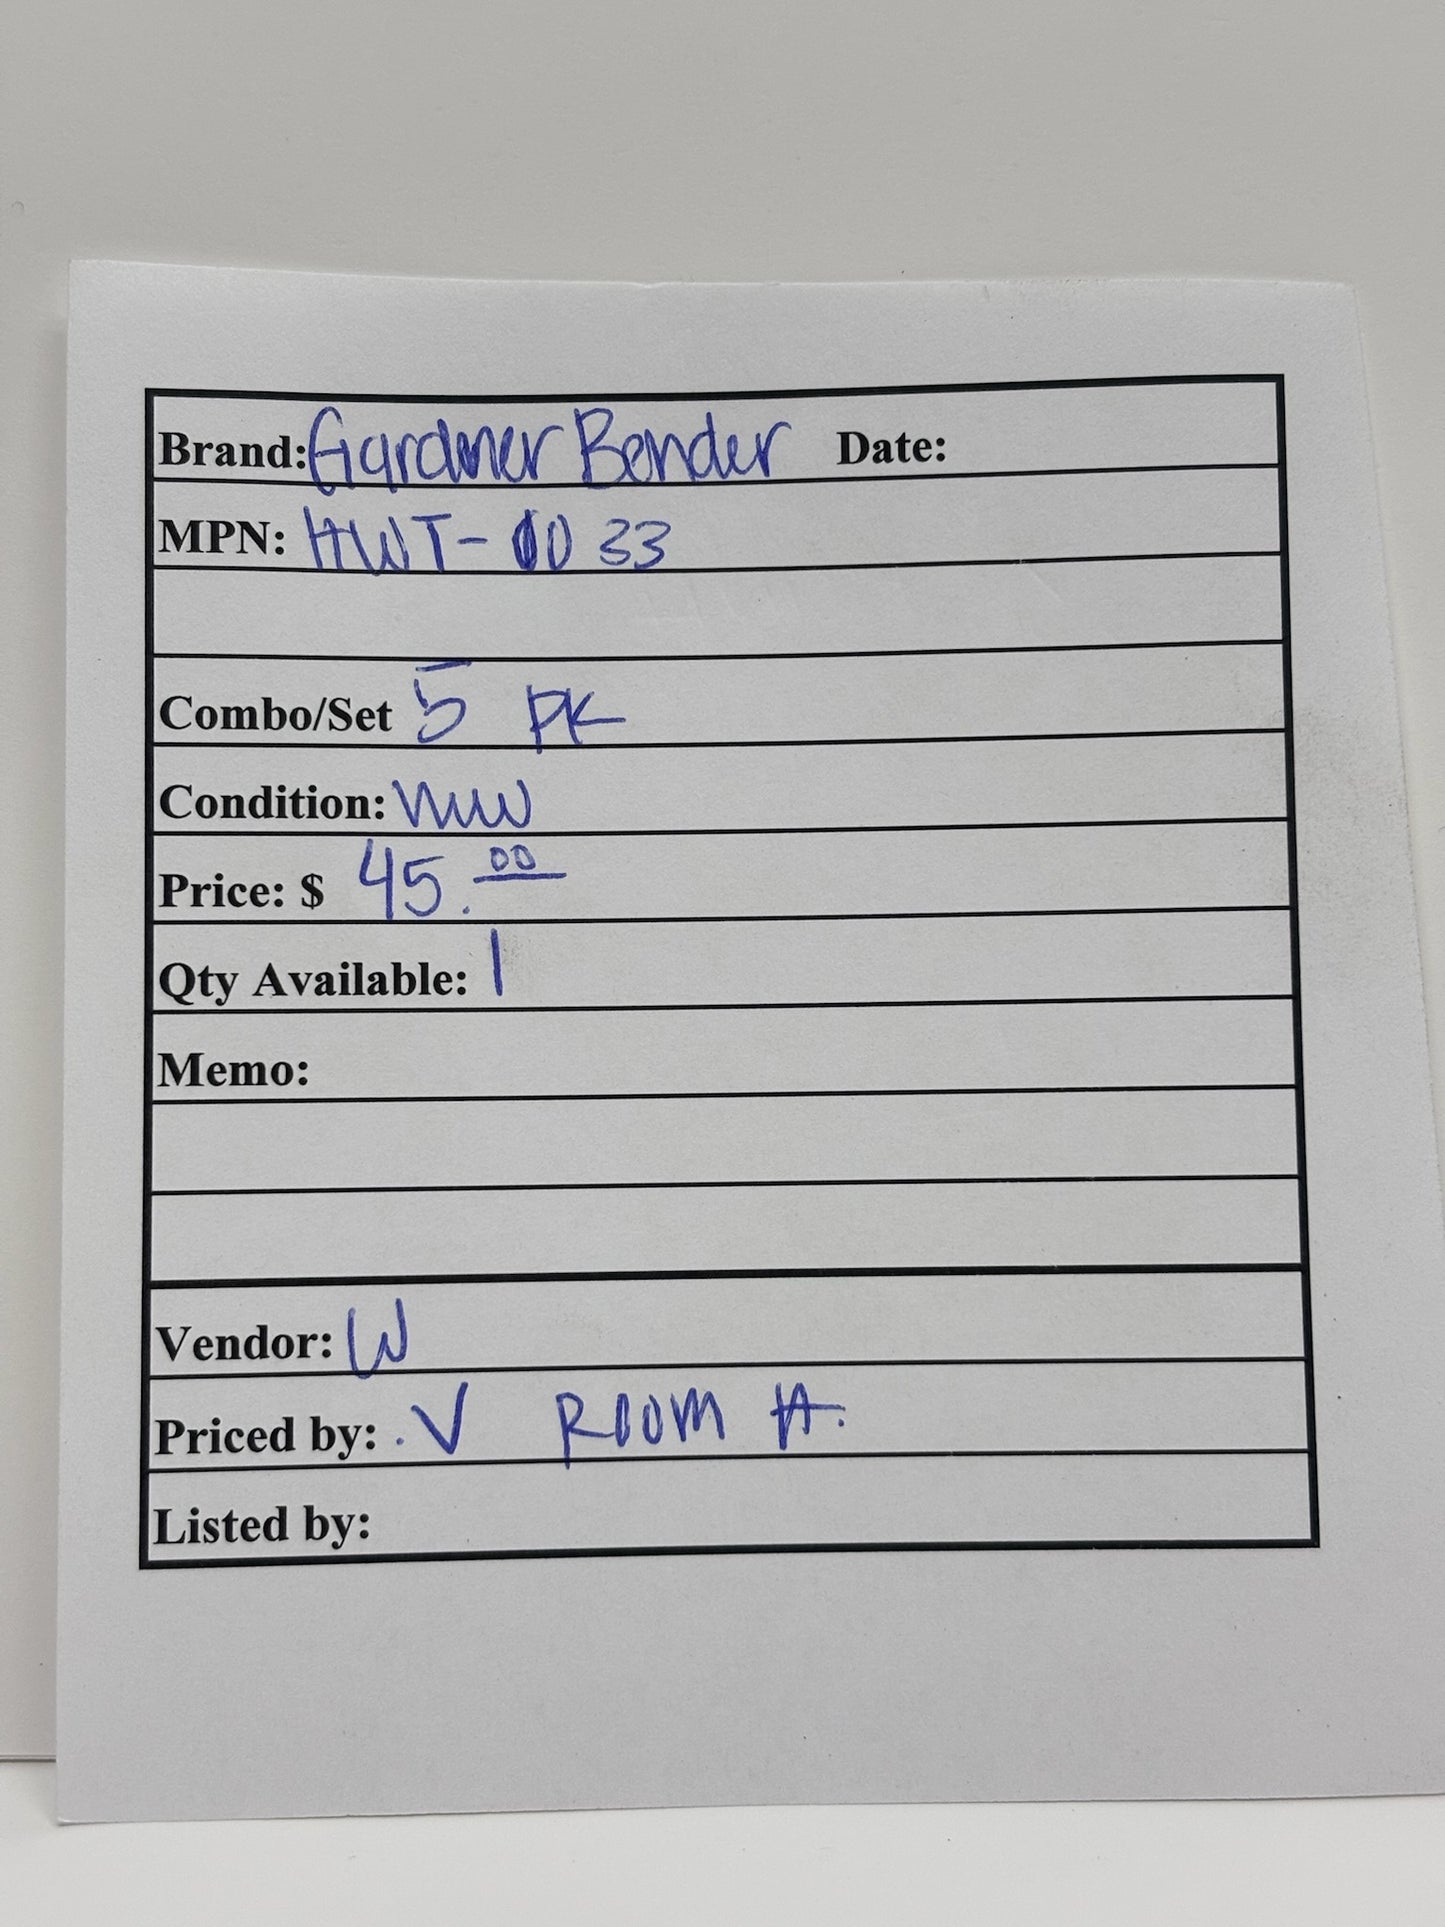 Brand: Gardner Bender Date:
MPN: HWT-0033
Combo/Set 5 PK
Condition: new
Price: $ 45.00
Qty Available: 1
Memo:
Vendor: W
Priced by: . V ROOM A.
Listed by: